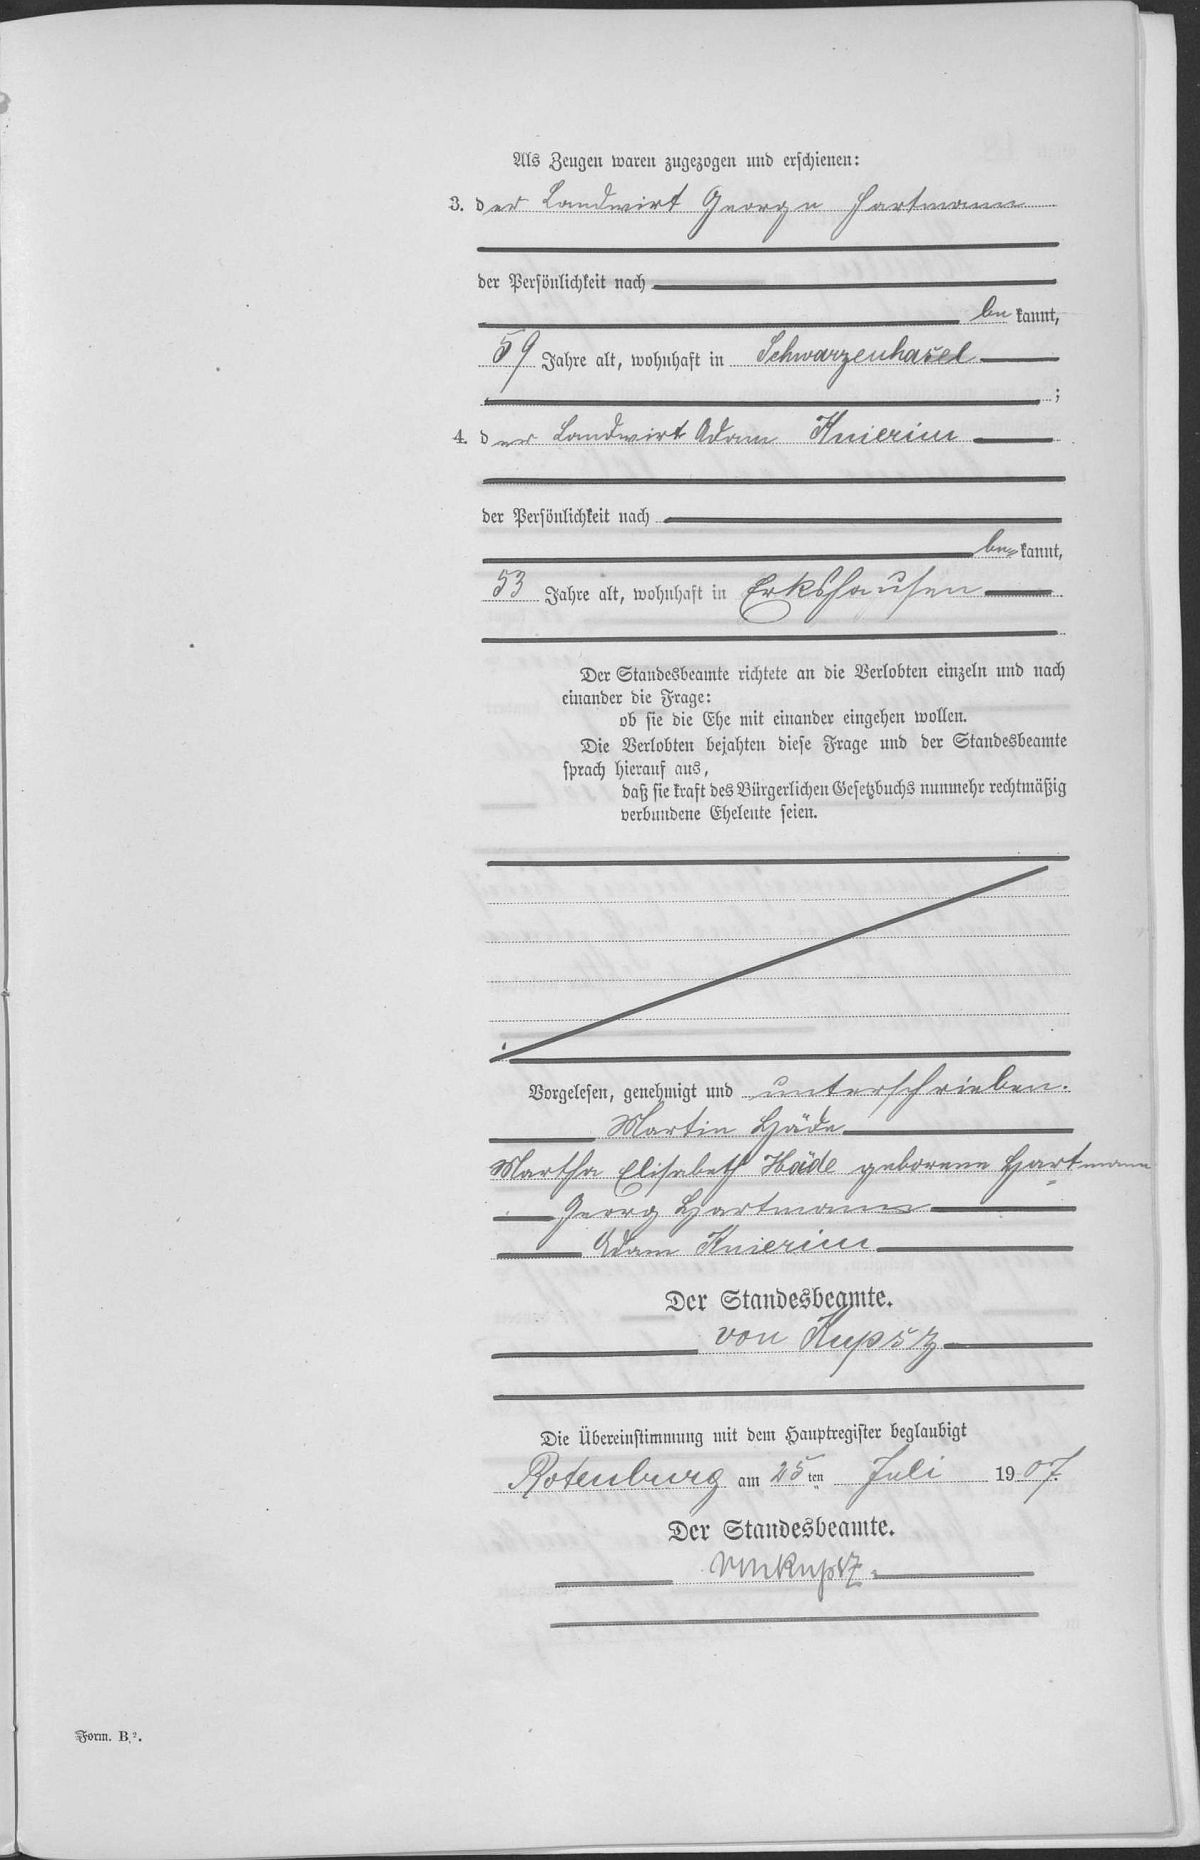 Als Zeugen waren zugezogen und erschienen:
3. der Landwirt George Hartmann
der Persönlichkeit nach
be kannt,
59 Jahre alt, wohnhaft in Schwarzenhasel
;
4. der Landwirt Adam Knierim
der Persönlichkeit nach
be kannt,
53 Jahre alt, wohnhaft in Erkshausen
Der Standesbeamte richtete an die Verlobten einzeln und nach
einander die Frage:
ob sie die Ehe mit einander eingehen wollen.
Die Verlobten bejahten diese Frage und der Standesbeamte
sprach hierauf aus,
daß sie kraft des Bürgerlichen Gesetzbuchs nunmehr rechtmäßig
verbundene Eheleute seien.
Vorgelesen, genehmigt und unterschrieben.
Martin Häde
Martha Elisabeth Häde geborene Hartmann
Georg Hartmann
Adam Knierim
Der Standesbeamte.
von Kupsz
Die Übereinstimmung mit dem Hauptregister beglaubigt
Rotenburg am 25 ten Juli 1907.
Der Standesbeamte.
von Kupsz
Form. B.².